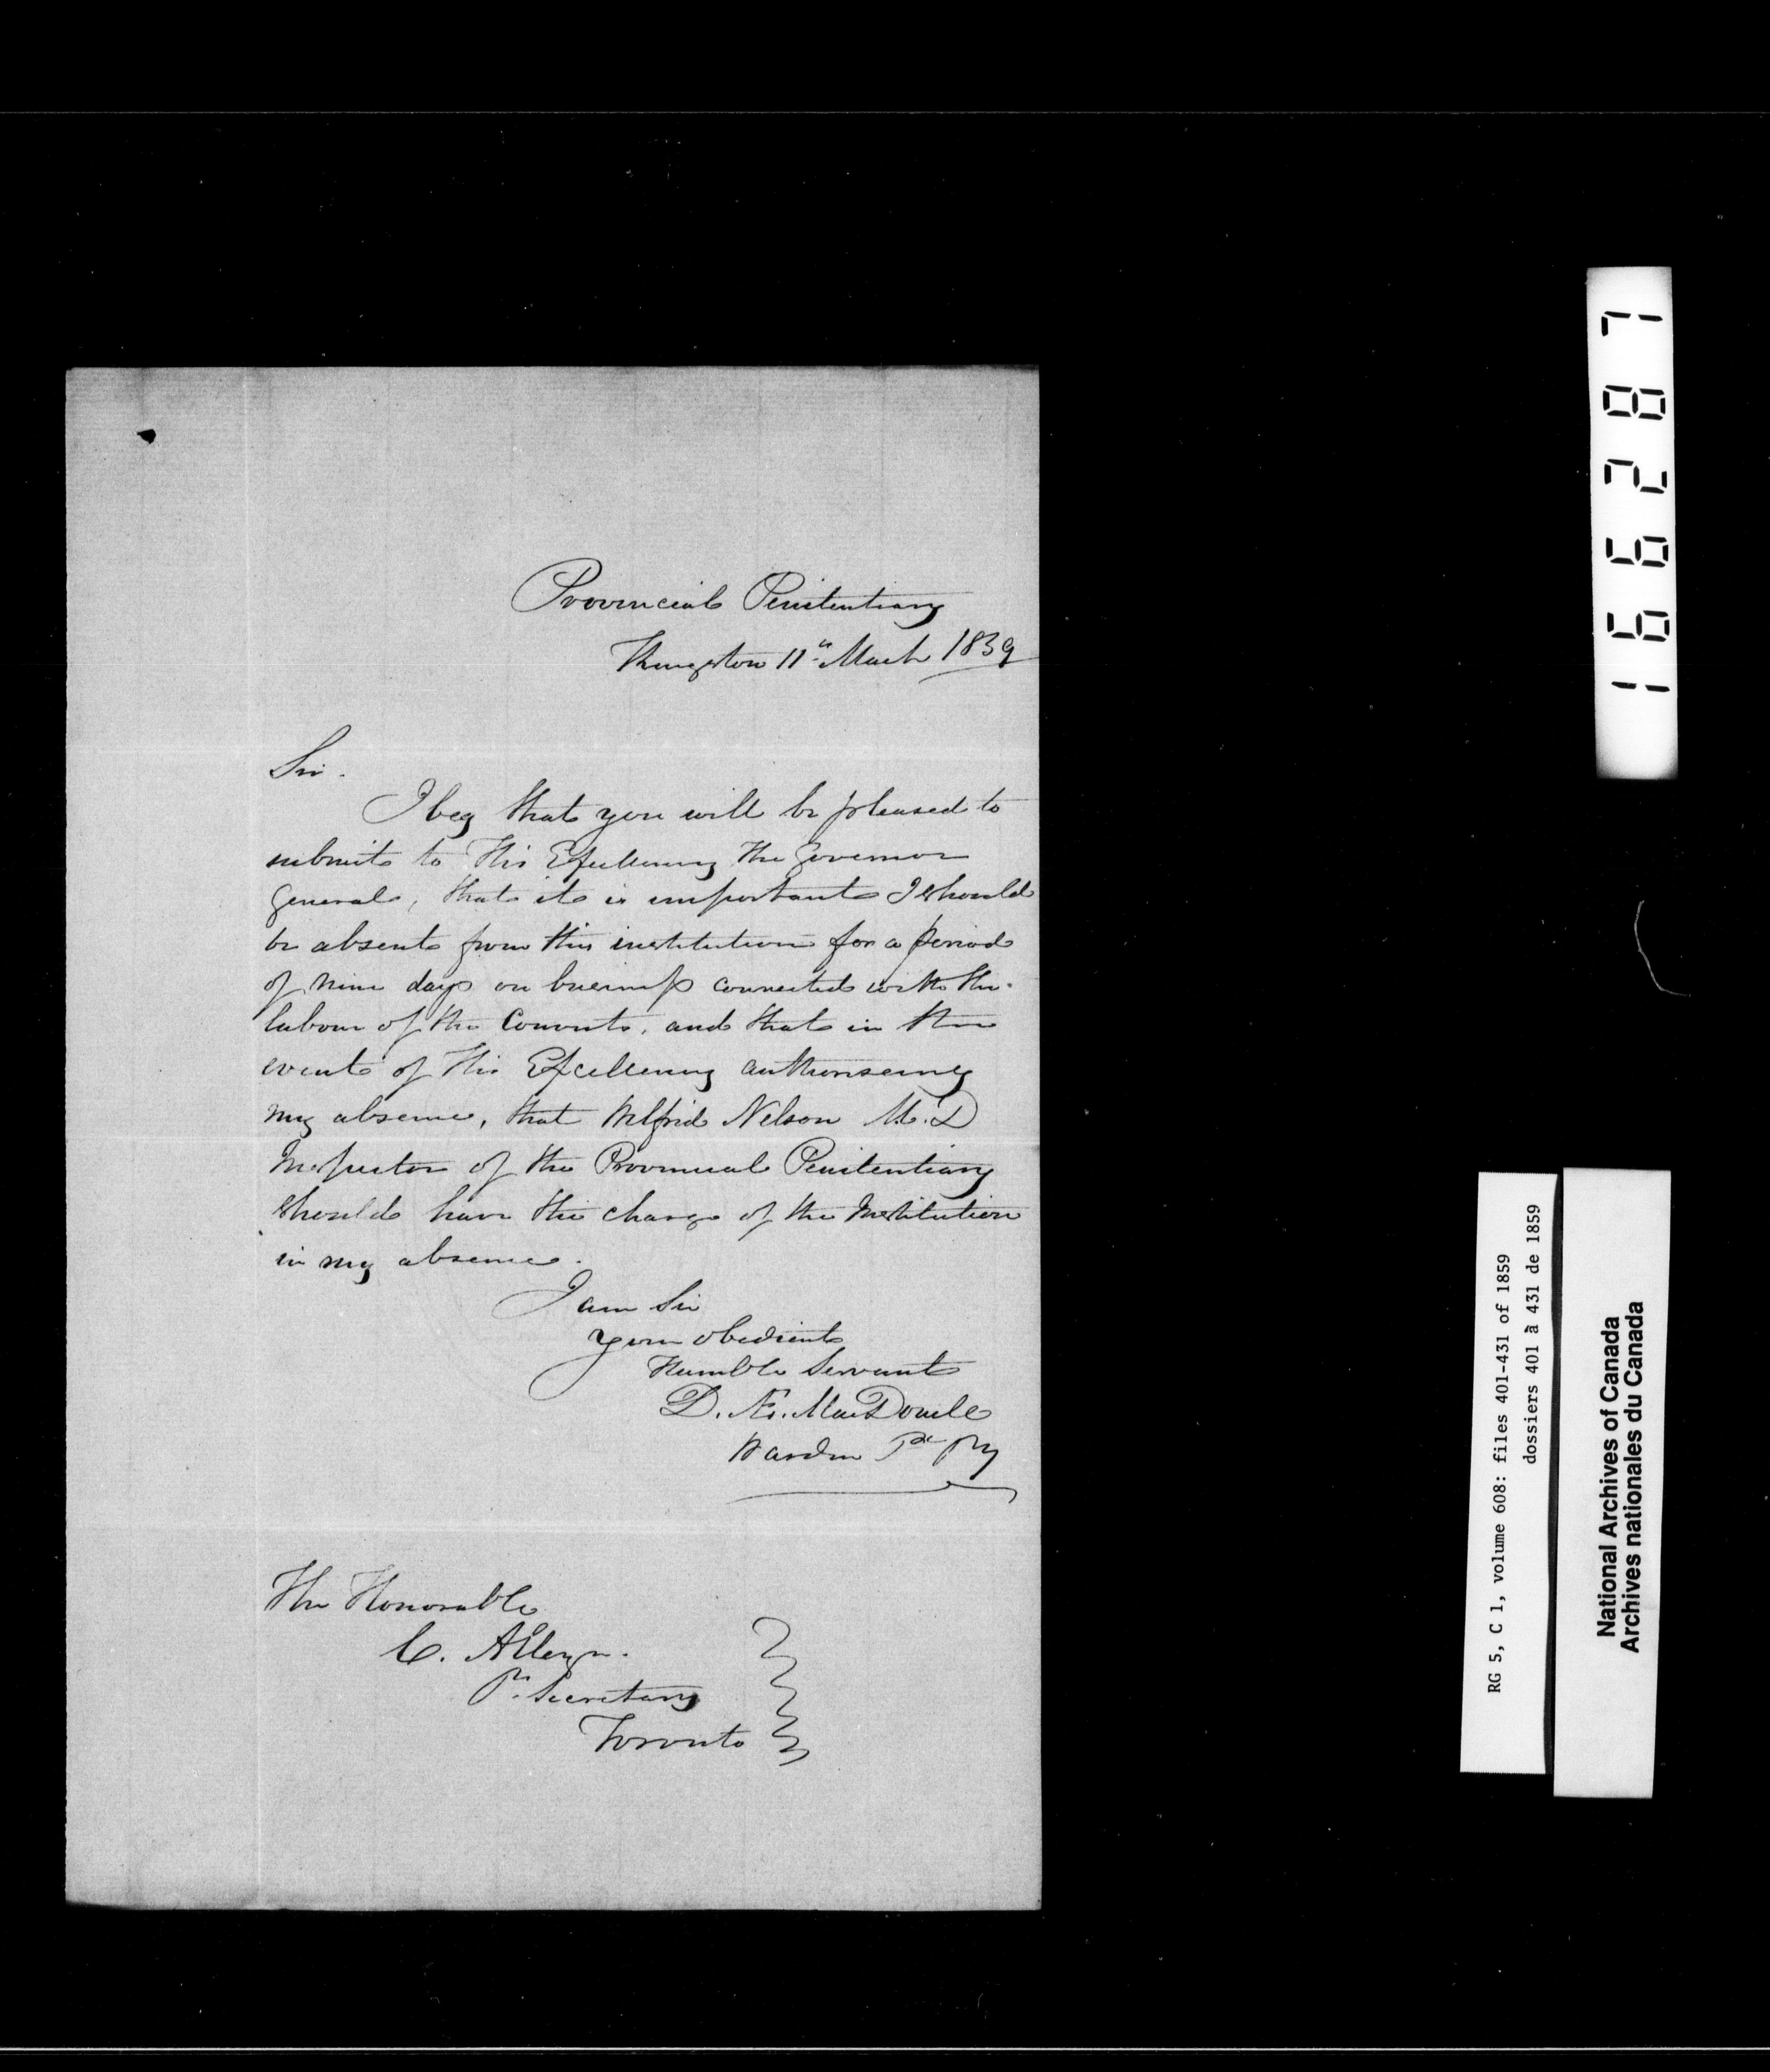 Provincial Penitentiary
Kingston 11th March 1839
Sir.
I beg that you will be pleased to
submit to His Excellency The Governor
General, that it is important I should
be absent from this institution for a period
of nine days on business connected with the
labour of the Convicts, and that in the
event of His Excellency authorising
my absence, that Wolfrid Nelson M.D
Inspector of the Provincial Penitentiary
should have the charge of the Institution
in my absence.
I am Sir
your obedient
Humble Servant
D. Æ. MacDonell
Warden Pl Py
The Honorable
C. Alleyn.
Pl. Secretary
Toronto
166287
RG 5, C 1, volume 608: files 401-431 of 1859
dossiers 401 à 431 de 1859
National Archives of Canada
Archives nationales du Canada